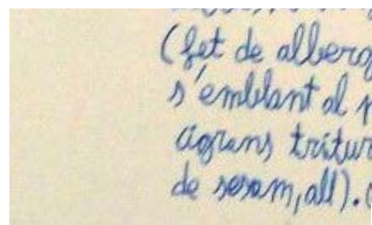 (fet de alberg
s'emblant al p
cigrans tritur
de sesam, all).